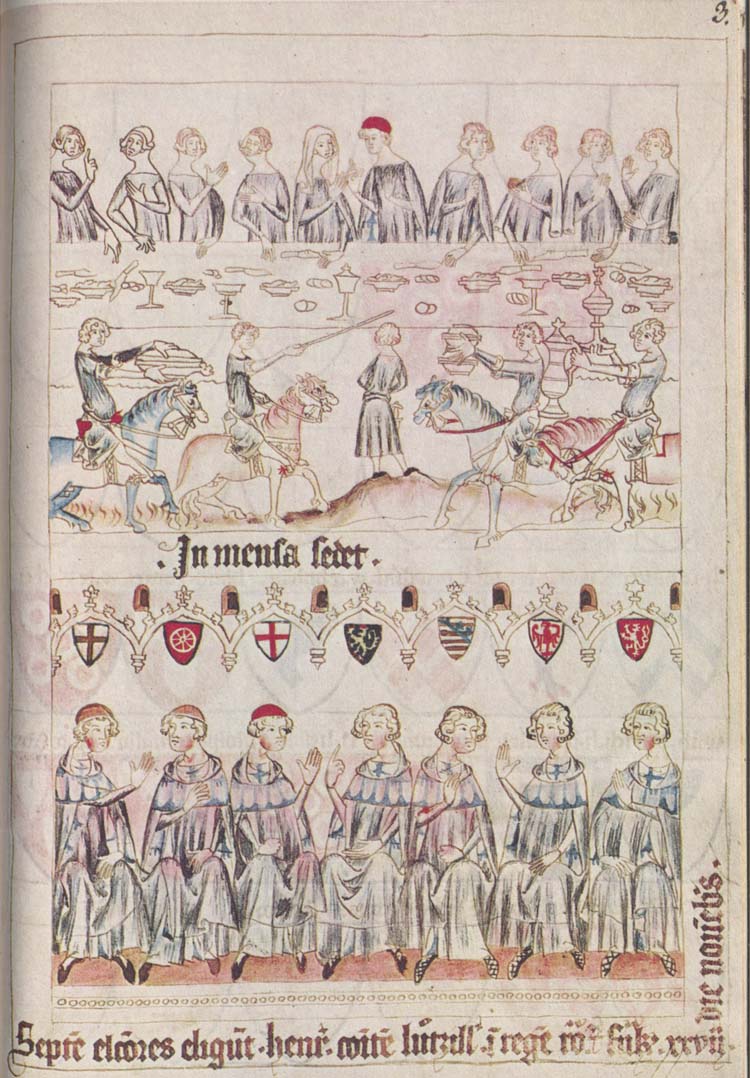 3.
. In mensa sedet .
Septē elcōres eligūt · henr̄ · comitē lutzill' · ī regē · xxvii ·
die novēbis .